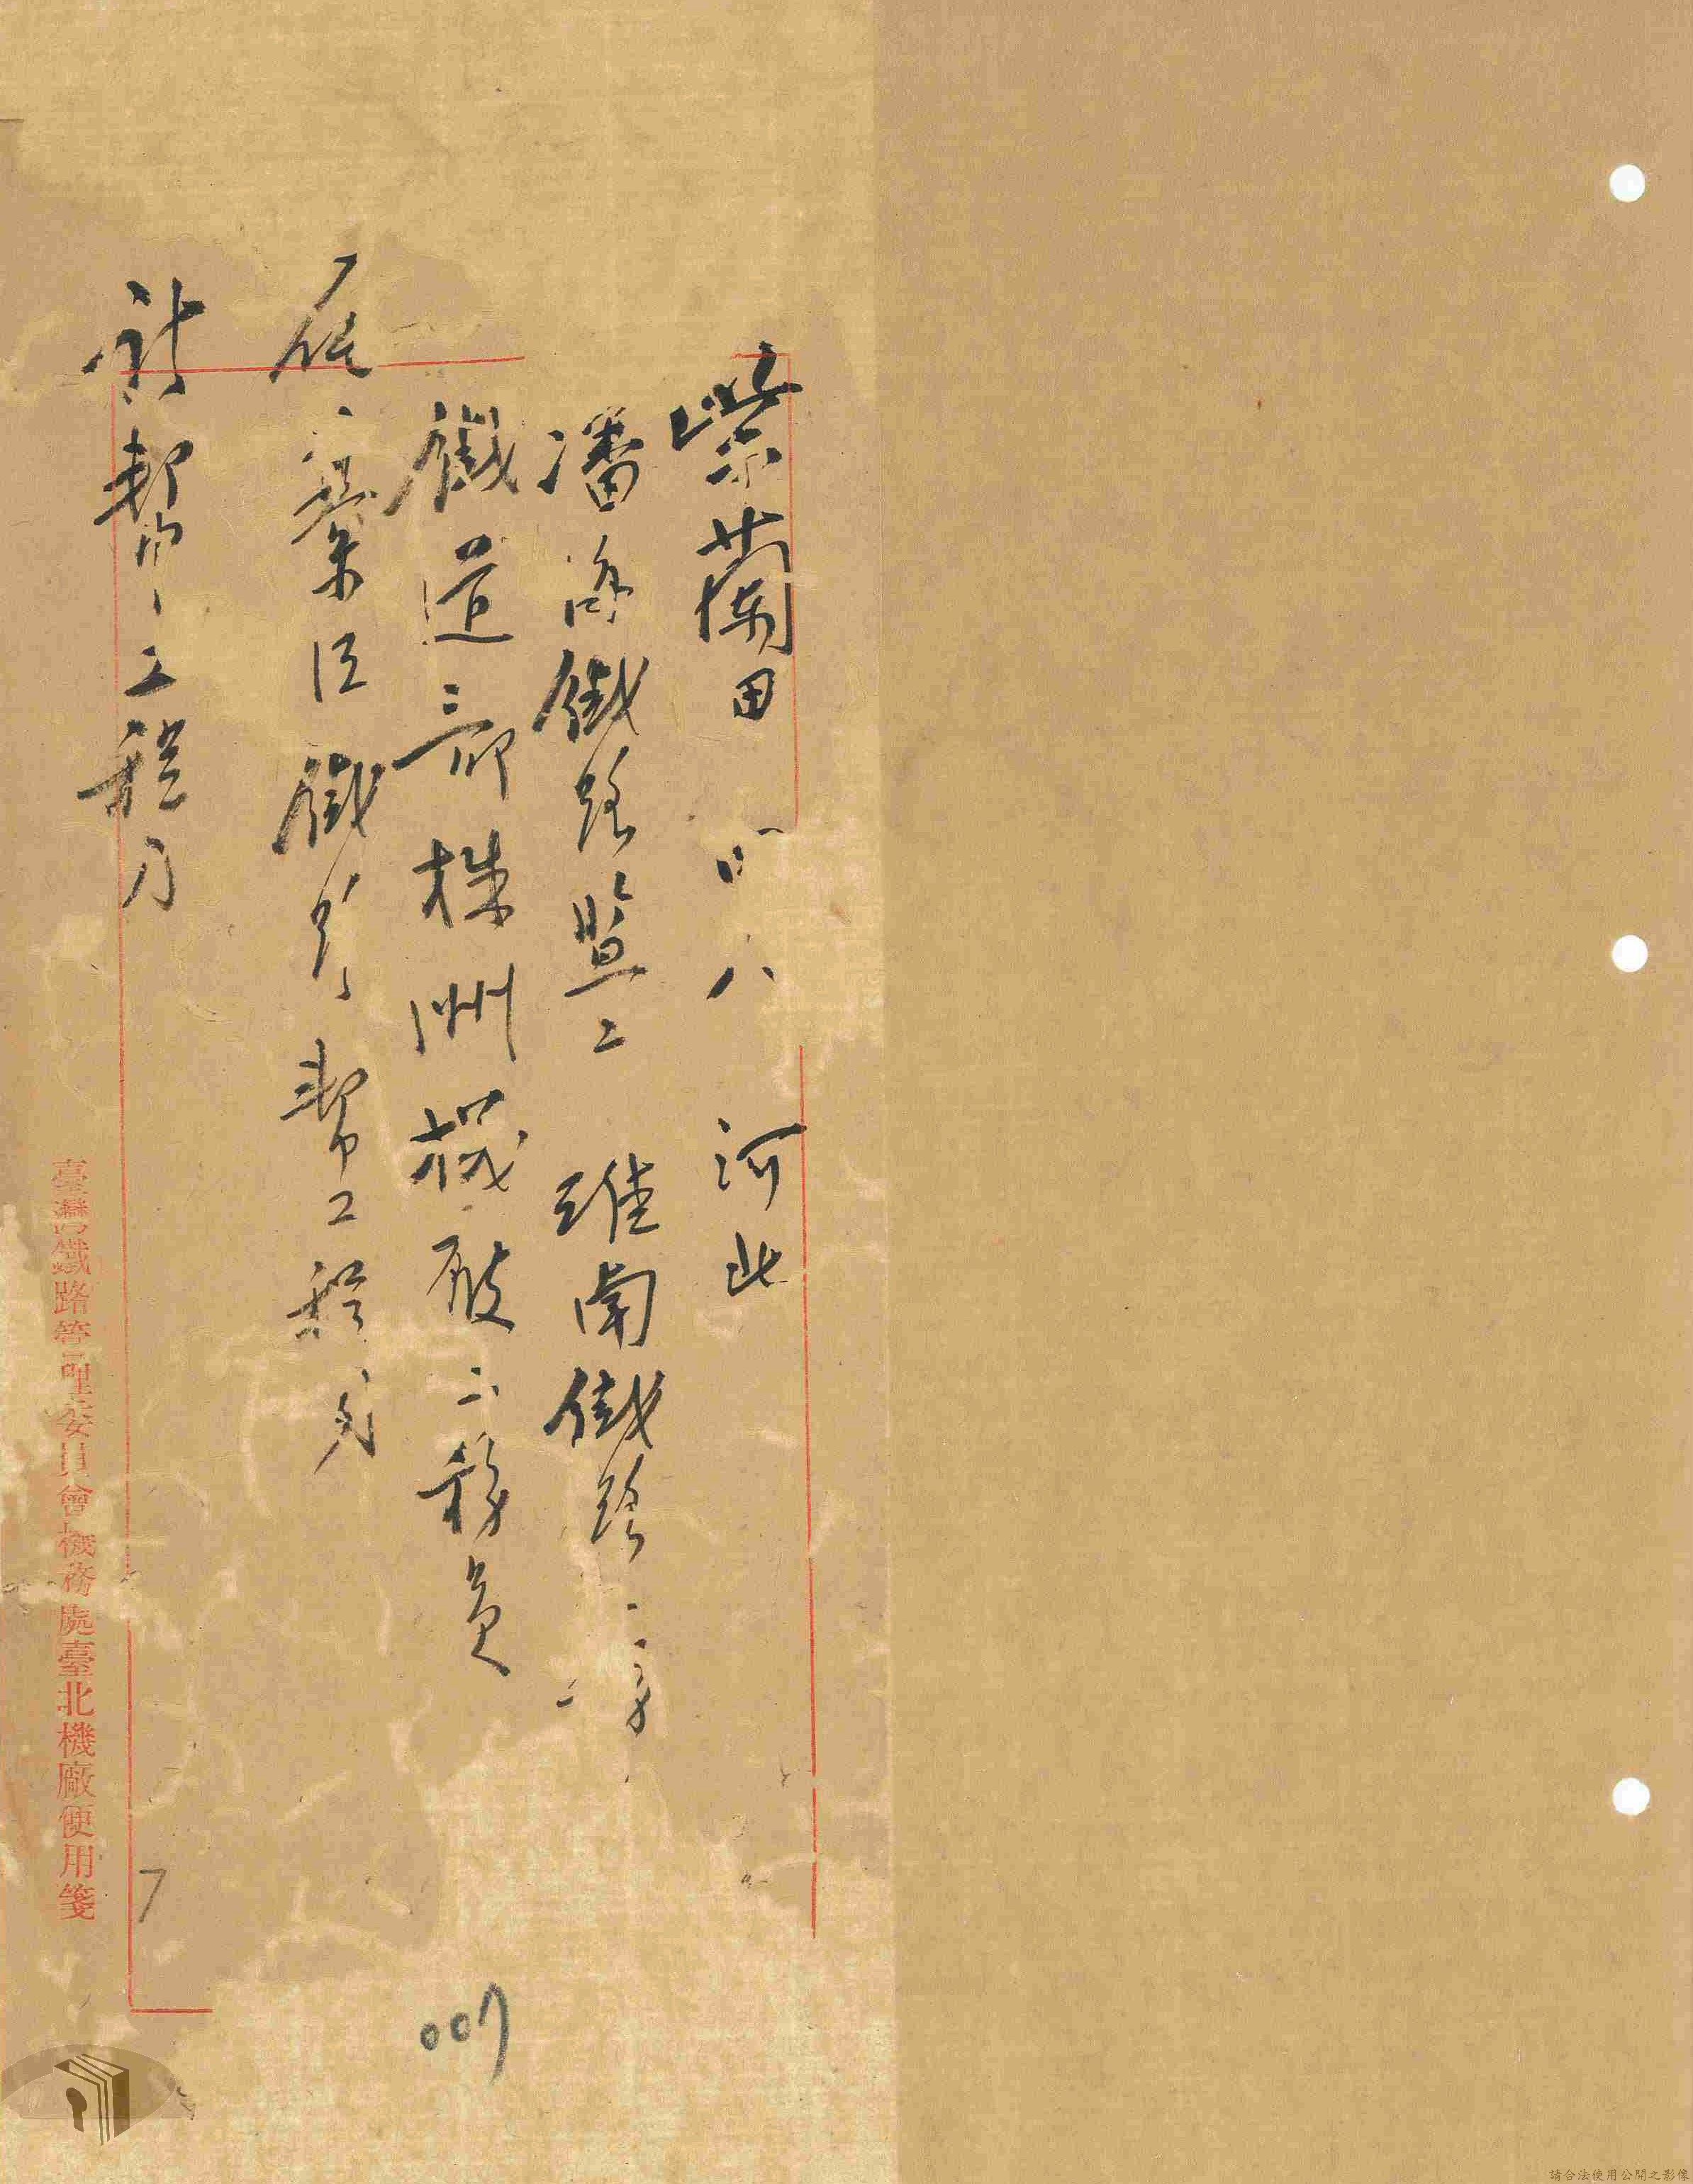 柴蘭田 四八 河北
潘海鐵路監工 淮南鐵路
鐵道部株洲機廠工務員
綦江鐵路幫工程司
幫工程司
臺灣鐵路管理委員會機務處臺北機廠便用箋
7
007
請合法使用公開之影像